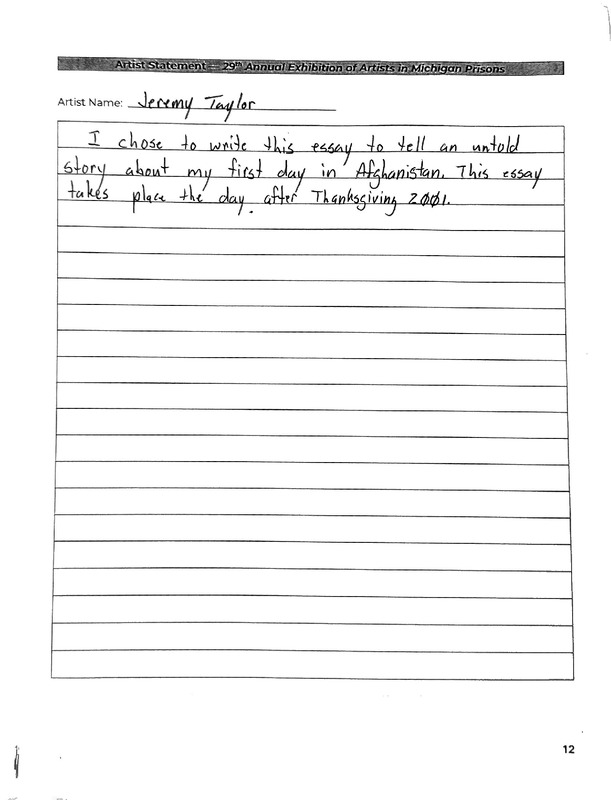 Artist Statement — 29th Annual Exhibition of Artists in Michigan Prisons
Artist Name: Jeremy Taylor
I chose to write this essay to tell an untold
story about my first day in Afghanistan. This essay
takes place the day after Thanksgiving 2001.
12